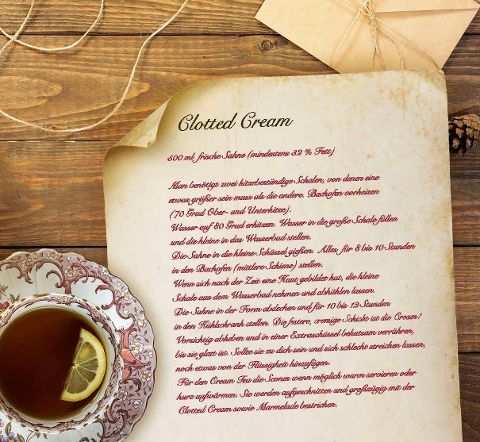 Clotted Cream
500 ml frische Sahne (mindestens 32 % Fett)
Man benötigt zwei hitzebeständige Schalen, von denen eine
etwas größer sein muss als die andere. Backofen vorheizen
(70 Grad Ober- und Unterhitze).
Wasser auf 80 Grad erhitzen. Wasser in die große Schale füllen
und die kleine in das Wasserbad stellen.
Die Sahne in die kleine Schüssel gießen. Alles für 8 bis 10 Stunden
in den Backofen (mittlere Schiene) stellen.
Wenn sich nach der Zeit eine Haut gebildet hat, die kleine
Schale aus dem Wasserbad nehmen und abkühlen lassen.
Die Sahne in der Form abdecken und für 10 bis 12 Stunden
in den Kühlschrank stellen. Die feste, cremige Schicht ist die Cream!
Vorsichtig abheben und in einer Extraschüssel behutsam verrühren,
bis sie glatt ist. Sollte sie zu dick sein und sich schlecht streichen lassen,
noch etwas von der Flüssigkeit hinzufügen.
Für den Cream Tea die Scones wenn möglich warm servieren oder
kurz aufwärmen. Sie werden aufgeschnitten und großzügig mit der
Clotted Cream sowie Marmelade bestrichen.